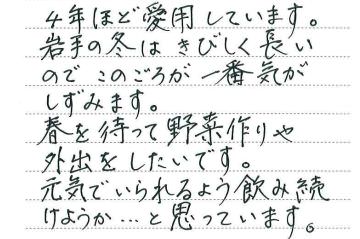 4年ほど愛用しています。
岩手の冬はきびしく長い
のでこのごろが一番気が
しずみます。
春を待って野菜作りや
外出をしたいです。
元気でいられるよう飲み続
けようか…と思っています。